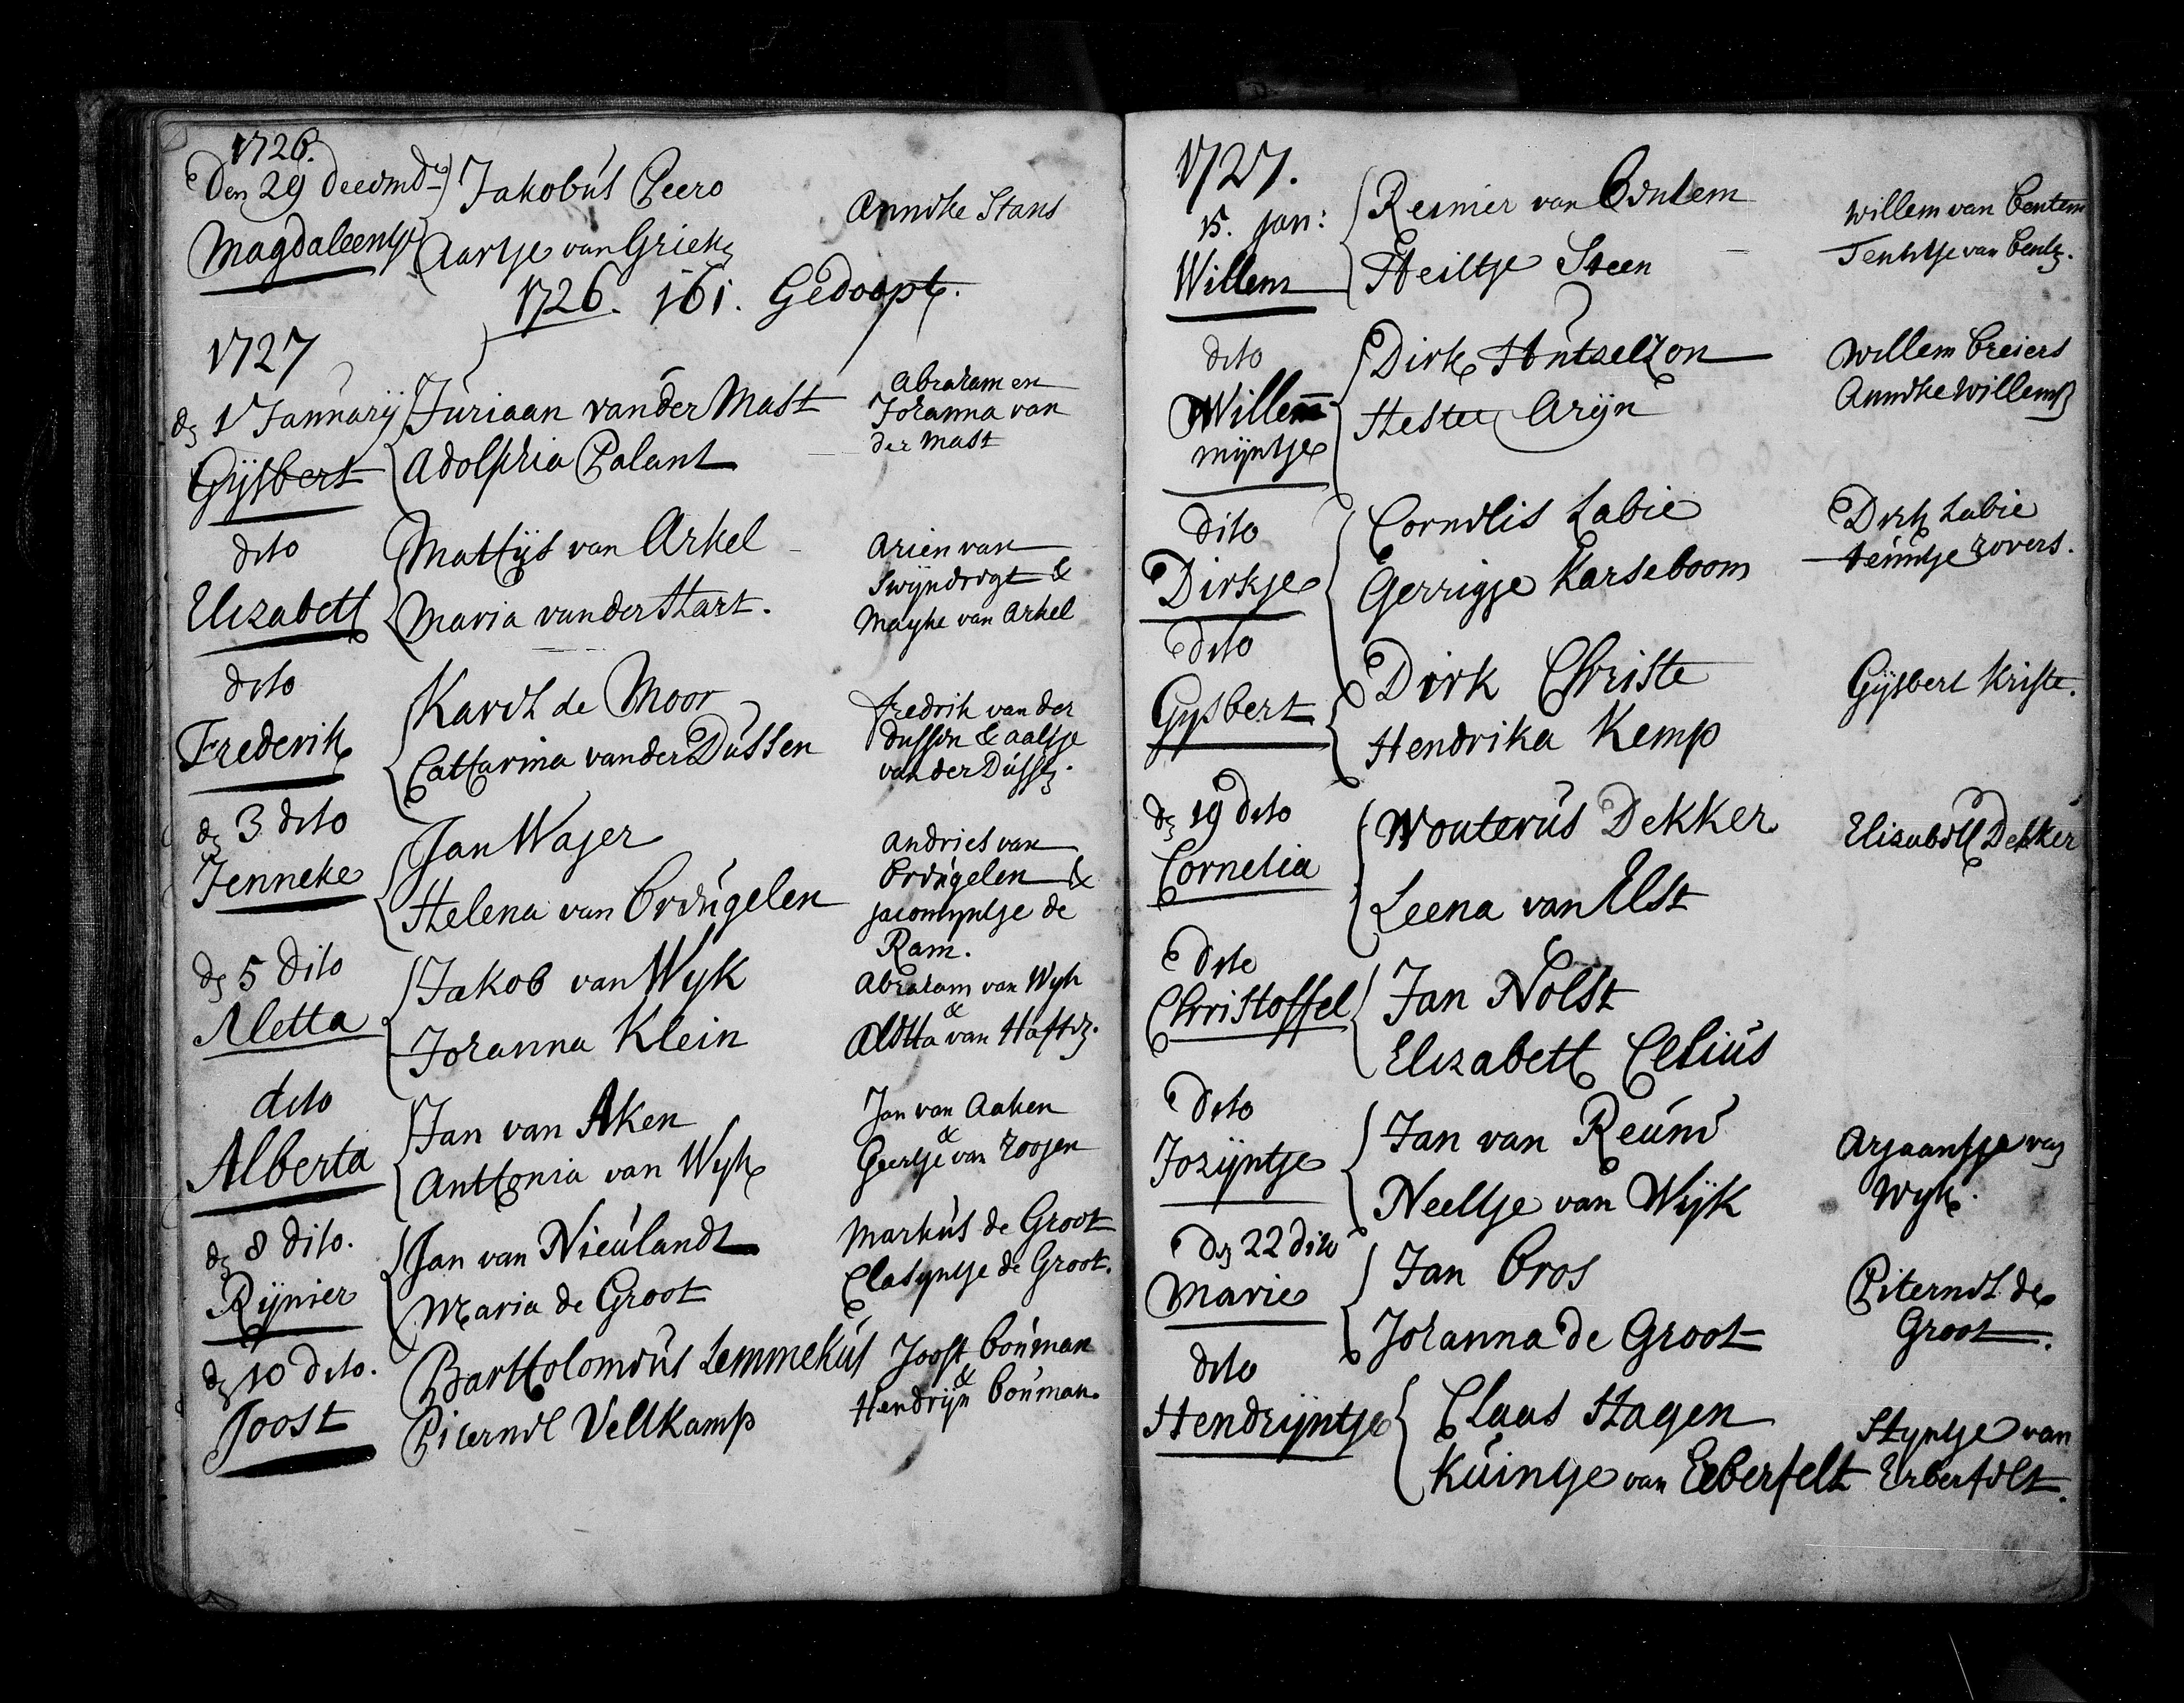 1726.
Den 29 deecmb
Magdaleentje
Jakobus Peero
Aartje van Griek
Anneke Stans
1726. 161. Gedoopt.
1727
1 Jannarij
Gijsbert
Juriaan vander Mast
Adolphia Palant
Abraham en
Johanna van
der Mast
dito
Elizabeth
Mathijs van Arkel
Maria vander Start.
Arien van
Swijndregt &
Mayke van Arkel
dito
Frederik
Karel de Moor
Catharina vander Dussen
fredrik van der
Dussen & aaltje
van der Duss
3 dito
Jenneke
Jan Wajer
Helena van Breugelen
Andries van
Breugelen &
jacomyntje de
Ram.
5 dito
Aletta
Jakob van Wyk
Johanna Klein
Abraham van Wyk
&
Aletta van Haft
dito
Alberta
Jan van Aken
Anthonia van Wyk
Jan van Aaken
&
Geertje van Roojen
8 dito.
Rijnier
Jan van Nieulandt
Maria de Groot
Markus de Groot
Clasyntje de Groot.
10 dito.
Joost
Bartholomeus Lemmekus
Pieternel Velkamp
Joost Bouman
&
Hendrijn Bouman.
1727.
15. jan:
Willem
Reinier van Bentem
Heiltje Steen
willem van Bentem
van Bent.
dito
Willem
mijntje
Dirk Hentzelzon
Hester Arijn
Willem Breiers
Anneke Willems
dito
Dirkje
Cornelis Labie
Gerrigje Karseboom
Dirk Labie
Teuntje Rovers.
dito
Gysbert
Dirk Christe
Hendrika Kemp
Gijsbert Kriste.
19 dito
Cornelia
Wouterus Dekker
Leena van Elst
Elisabeth Dekker
dito
Christoffel
Jan Nolst
Elizabeth Celius
dito
Jozijntje
Jan van Reume
Neeltje van Wijk
Arjaantje van
Wyk.
22 dito
Marie
Jan Bros
Johanna de Groot
Piternel de
Groot.
dito
Hendrijntje
Claas Hagen
Kuintje van Eeberfelt
Styntje van
Erberfelt.